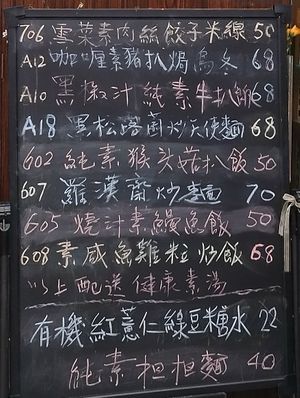 706 雪菜素肉絲餃子米線 50
A12 咖喱素豬扒焗烏冬 68
A10 黑椒汁純素牛扒飯 68
A18 黑松露菌炒天使麵 68
602 純素猴头菇扒飯 50
607 羅漢齋炒麵 70
605 燒汁素鰻魚飯 50
608 素咸魚雞粒炒飯 68
以上配送健康素湯
有機紅薏仁綠豆糖水 22
純素担担麵 40